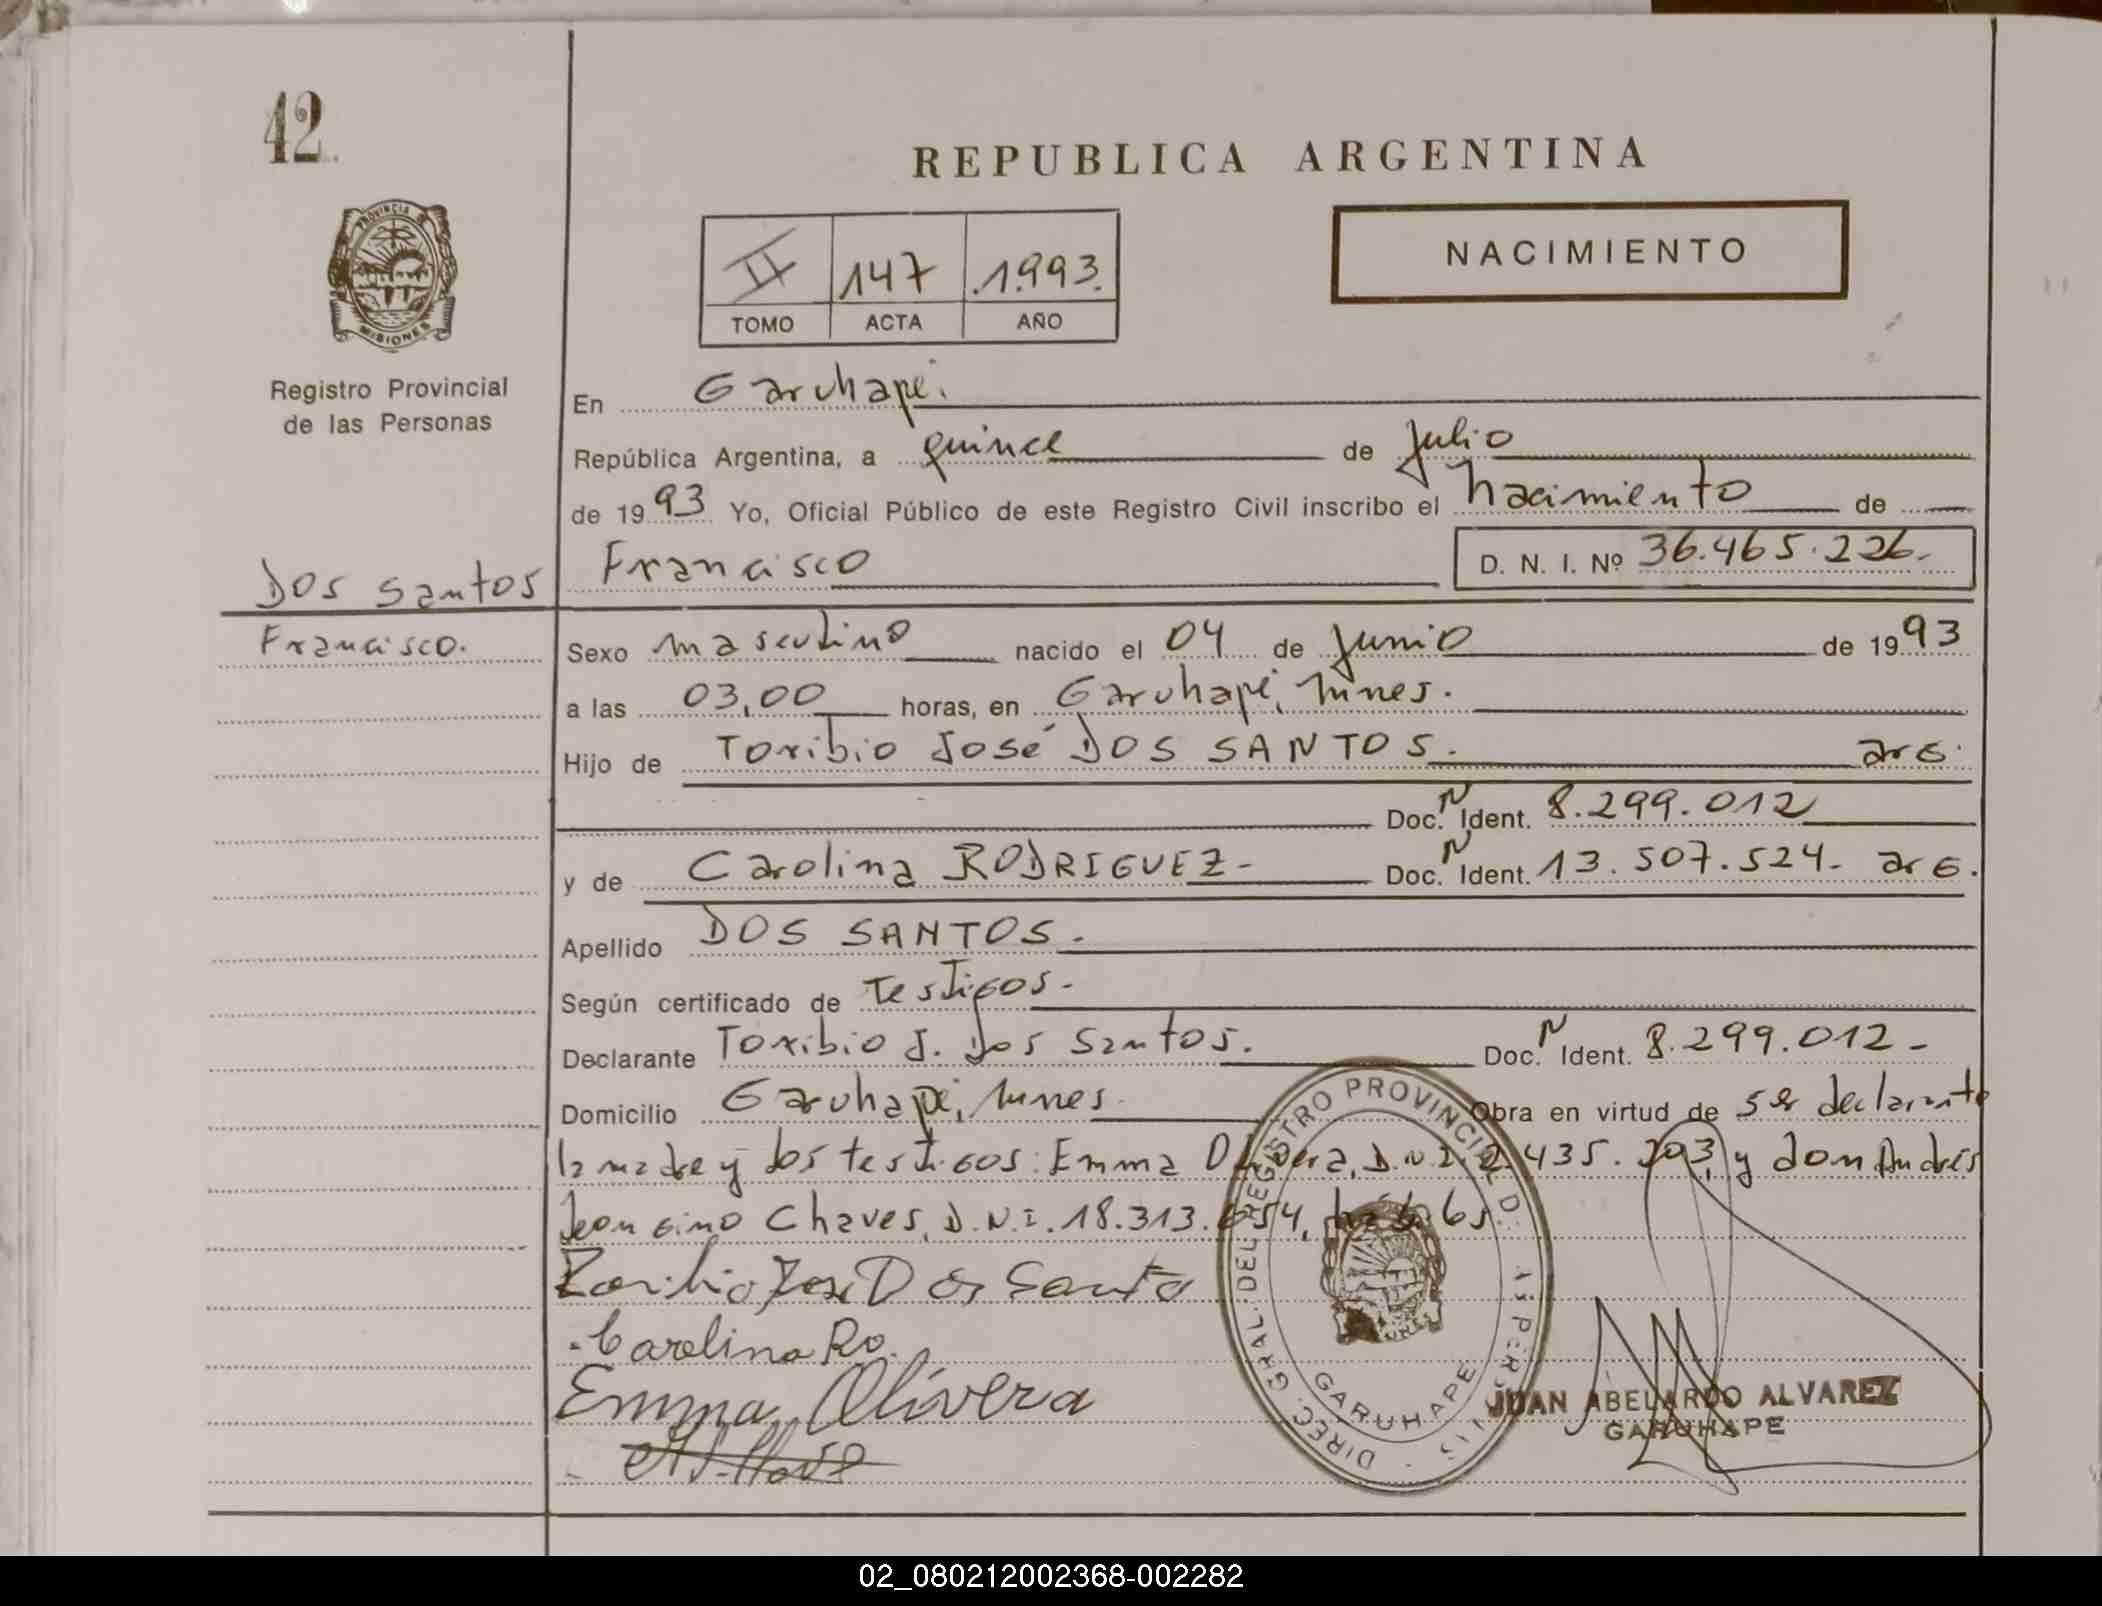 42.
REPUBLICA ARGENTINA
NACIMIENTO
II 147 1.993.
TOMO ACTA AÑO
PROVINCIA DE MISIONES
Registro Provincial
de las Personas
En Garuhapé.
República Argentina, a quince de Julio
de 1993 Yo, Oficial Público de este Registro Civil inscribo el Nacimiento de
Francisco D. N. I. Nº 36.465.226.-
Dos Santos
Francisco.
Sexo masculino nacido el 04 de Junio de 1993
a las 03,00 horas, en Garuhapé, Mnes.
Hijo de Toribio José DOS SANTOS. arg.
Doc. N Ident. 8.299.012
y de Carolina RODRIGUEZ- Doc. N Ident. 13.507.524- arg.
Apellido DOS SANTOS.-
Según certificado de Testigos.-
Declarante Toribio J. Dos Santos. Doc. N Ident. 8.299.012-
Domicilio Garuhapé, Mnes. Obra en virtud de ser declarante
la madre y los testigos: Emma Olivera, D.N.I. 435.203, y don Andrés
Chaves, D.N.I. 18.313.654, hábiles.
Toribio José Dos Santo
Carolina Ro.
Emma Olivera
DIREC. GRAL. DEL REGISTRO PROVINCIAL DE LAS PERSONAS
GARUHAPE
JUAN ABELARDO ALVAREZ
GARUHAPE
02_080212002368-002282